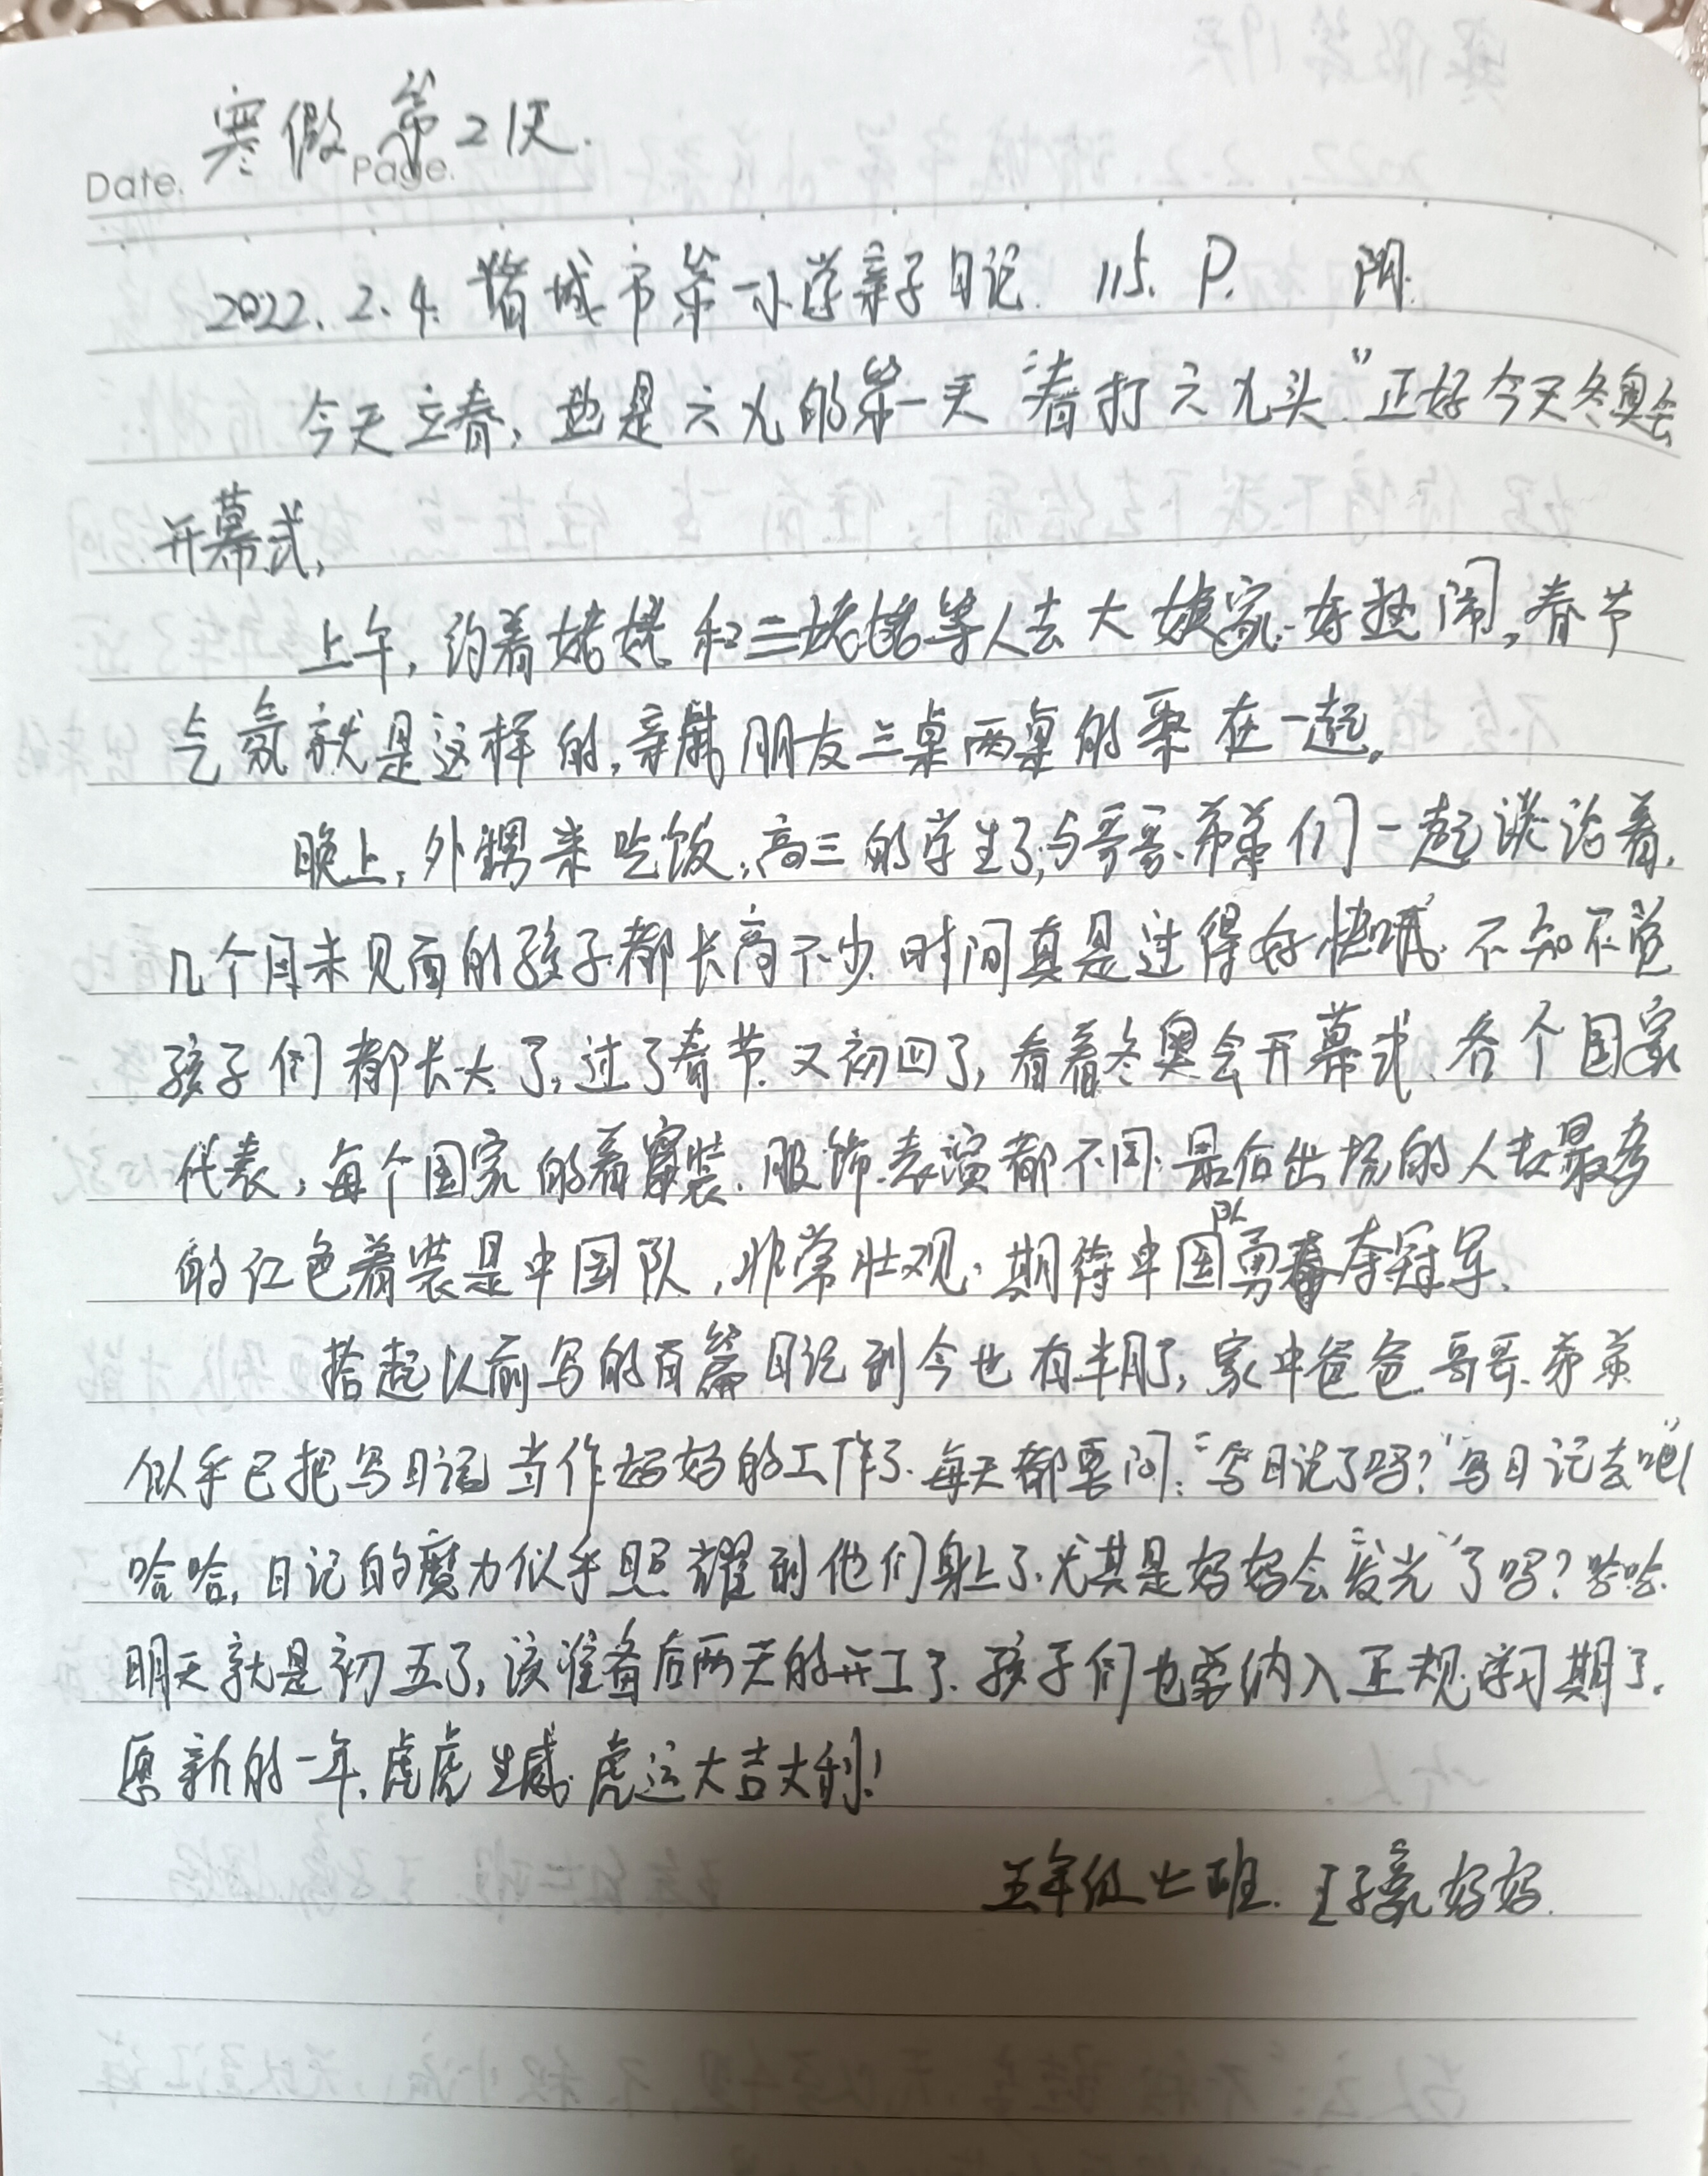 寒假第21天.
Date. Page.
2022.2.4. 诸城市第一小学亲子日记 115. P. 阴.
今天立春,也是六九的第一天"春打六九头"正好今天冬奥会
开幕式,
上午,约着姥姥和三姥姥等人去大姨家.好热闹,春节
气氛就是这样的,亲戚朋友三桌两桌的聚在一起。
晚上,外甥来吃饭,高三的学生了,与哥哥、弟弟们一起谈论着,
几个月未见面的孩子都长高不少.时间真是过得好快哦.不知不觉
孩子们都长大了,过了春节.又初四了,看着冬奥会开幕式、各个国家
代表,每个国家的着装.服饰.表演都不同.最后出场的人数最多
的红色着装是中国队,非常壮观.期待中国队勇夺冠军.
拾起以前写的百篇日记到今也有半月了,家中爸爸.哥哥.弟弟
似乎已把写日记当作妈妈的工作了.每天都要问:"写日记了吗?"写日记去吧"
哈哈,日记的魔力似乎照耀到他们身上了.尤其是妈妈会"发光"了吗?哈哈.
明天就是初五了,该准备后两天的开工了.孩子们也要纳入正规学习期了.
愿新的一年,虎虎生威.虎运大吉大利!
五年级七班. 王子豪妈妈.